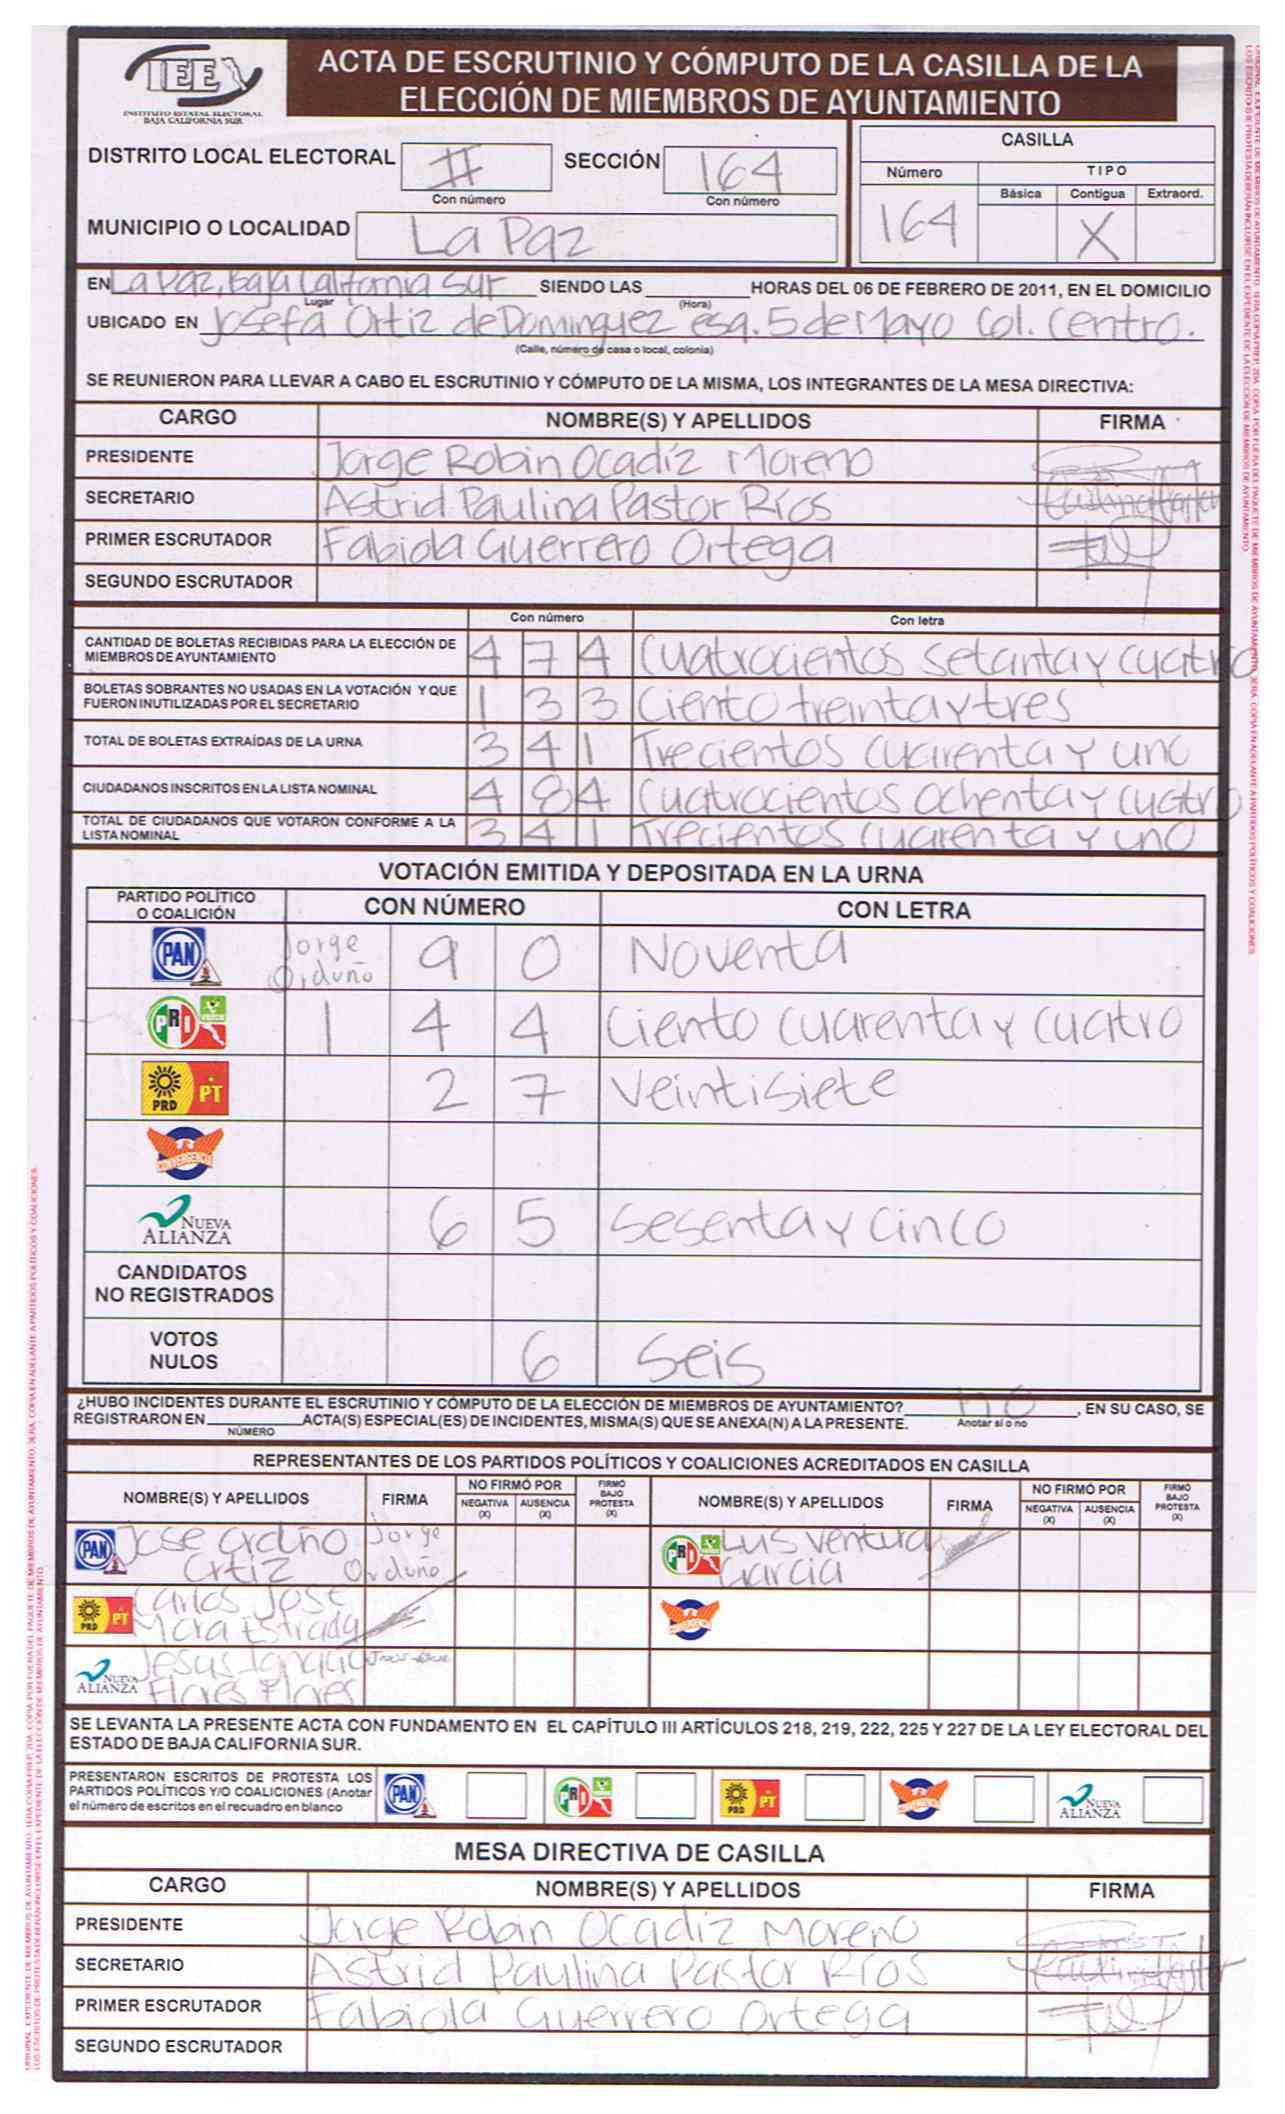 IEE
INSTITUTO ESTATAL ELECTORAL
BAJA CALIFORNIA SUR
ACTA DE ESCRUTINIO Y CÓMPUTO DE LA CASILLA DE LA
ELECCIÓN DE MIEMBROS DE AYUNTAMIENTO
DISTRITO LOCAL ELECTORAL II SECCIÓN 164
Con número Con número
MUNICIPIO O LOCALIDAD La Paz
CASILLA
Número TIPO
Básica Contigua Extraord.
164 X
EN La Paz, Baja California Sur SIENDO LAS HORAS DEL 06 DE FEBRERO DE 2011, EN EL DOMICILIO
Lugar (Hora)
UBICADO EN Josefa Ortiz de Dominguez esq. 5 de Mayo Col. Centro.
(Calle, número de casa o local, colonia)
SE REUNIERON PARA LLEVAR A CABO EL ESCRUTINIO Y CÓMPUTO DE LA MISMA, LOS INTEGRANTES DE LA MESA DIRECTIVA:
CARGO NOMBRE(S) Y APELLIDOS FIRMA
PRESIDENTE Jorge Robin Ocadíz Moreno
SECRETARIO Astrid Paulina Pastor Ríos
PRIMER ESCRUTADOR Fabiola Guerrero Ortega
SEGUNDO ESCRUTADOR
Con número Con letra
CANTIDAD DE BOLETAS RECIBIDAS PARA LA ELECCIÓN DE
MIEMBROS DE AYUNTAMIENTO 4 7 4 Cuatrocientos setanta y cuatro
BOLETAS SOBRANTES NO USADAS EN LA VOTACIÓN Y QUE
FUERON INUTILIZADAS POR EL SECRETARIO 1 3 3 Ciento treinta y tres
TOTAL DE BOLETAS EXTRAÍDAS DE LA URNA 3 4 1 Trecientos cuarenta y uno
CIUDADANOS INSCRITOS EN LA LISTA NOMINAL 4 8 4 Cuatrocientos ochenta y cuatro
TOTAL DE CIUDADANOS QUE VOTARON CONFORME A LA
LISTA NOMINAL 3 4 1 Trecientos cuarenta y uno
VOTACIÓN EMITIDA Y DEPOSITADA EN LA URNA
PARTIDO POLÍTICO
O COALICIÓN CON NÚMERO CON LETRA
PAN Jorge Orduño 9 0 Noventa
PRI VERDE 1 4 4 Ciento cuarenta y cuatro
PRD PT 2 7 Veintisiete
CONVERGENCIA
NUEVA ALIANZA 6 5 Sesenta y cinco
CANDIDATOS
NO REGISTRADOS
VOTOS
NULOS 6 Seis
¿HUBO INCIDENTES DURANTE EL ESCRUTINIO Y CÓMPUTO DE LA ELECCIÓN DE MIEMBROS DE AYUNTAMIENTO? no, EN SU CASO, SE
REGISTRARON EN ACTA(S) ESPECIAL(ES) DE INCIDENTES, MISMA(S) QUE SE ANEXA(N) A LA PRESENTE. Anotar sí o no
NÚMERO
REPRESENTANTES DE LOS PARTIDOS POLÍTICOS Y COALICIONES ACREDITADOS EN CASILLA
NOMBRE(S) Y APELLIDOS FIRMA NO FIRMÓ POR NEGATIVA (X) AUSENCIA (X) FIRMÓ BAJO PROTESTA (X) NOMBRE(S) Y APELLIDOS FIRMA NO FIRMÓ POR NEGATIVA (X) AUSENCIA (X) FIRMÓ BAJO PROTESTA (X)
PAN Jose orduño Jorge PRI Luis Ventura
Ortiz Orduño Garcia
PRD PT Carlos Jose
Mora Estrada
NUEVA ALIANZA Jesus Ignacio
Flores Flores
SE LEVANTA LA PRESENTE ACTA CON FUNDAMENTO EN EL CAPÍTULO III ARTÍCULOS 218, 219, 222, 225 Y 227 DE LA LEY ELECTORAL DEL
ESTADO DE BAJA CALIFORNIA SUR.
PRESENTARON ESCRITOS DE PROTESTA LOS
PARTIDOS POLÍTICOS Y/O COALICIONES (Anotar
el número de escritos en el recuadro en blanco
PAN PRI PRD PT NUEVA ALIANZA
MESA DIRECTIVA DE CASILLA
CARGO NOMBRE(S) Y APELLIDOS FIRMA
PRESIDENTE Jorge Robin Ocadiz Moreno
SECRETARIO Astrid Paulina Pastor Ríos
PRIMER ESCRUTADOR Fabiola Guerrero Ortega
SEGUNDO ESCRUTADOR